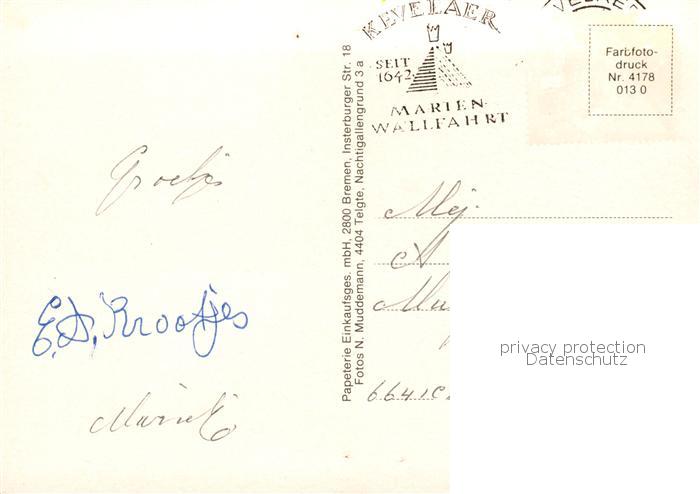 Groetjes
E.D. Krootjes
Papeterie Einkaufsges. mbH, 2800 Bremen, Insterburger Str. 18
Fotos N. Muddemann, 4404 Telgte, Nachtigallengrund 3 a
KEVELAER
SEIT
1642
MARIEN-
WALLFAHRT
Farbfoto-
druck
Nr. 4178
013 0
Mej.
A
6641
privacy protection
Datenschutz